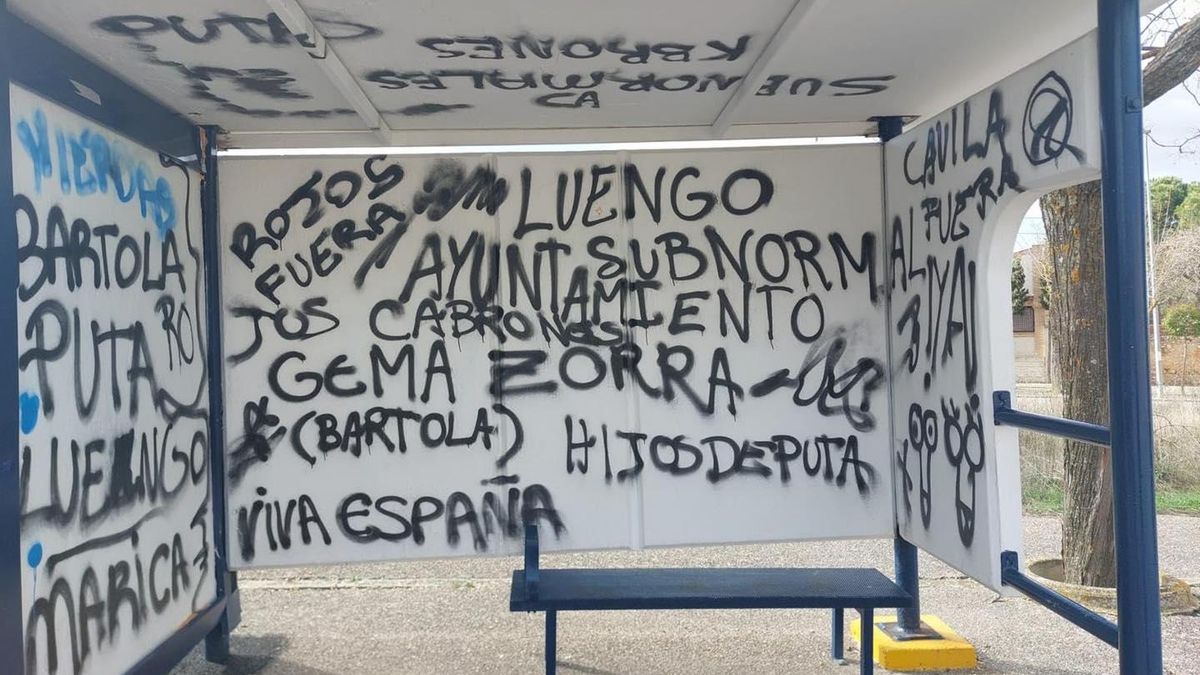 PUTA
KBRONES
SUENORMALES
CA
MIERDAS
BARTOLA
PUTA
RO
LUENGO
MARICA
ROJOS
FUERA
LUENGO
SUBNORM
AYUNTAMIENTO
JOS CABRONES
GEMA ZORRA
(BARTOLA)
HIJOS DE PUTA
VIVA ESPAÑA
CAVILA
FUERA
AL
¡YA!